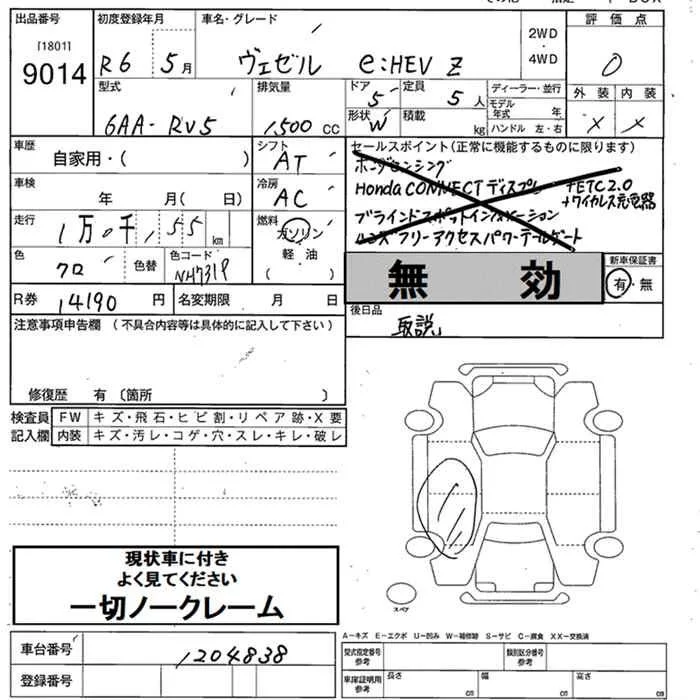 出品番号 初度登録年月 車名・グレード 評価点
[1801]
9014 R6 5月 ヴェゼル e:HEV Z 2WD・4WD 0
型式 排気量 ドア 5 定員 5人 ディーラー・並行 外装 内装
6AA-RV5 1,500 CC 形状 W 積載 kg モデル年式 年 × ×
ハンドル 左・右
車歴 自家用・( ) シフト AT セールスポイント(正常に機能するものに限ります)
ホンダセンシング
車検 年 月( 日) 冷房 AC Honda CONNECTディスプレー +ETC2.0
+ワイヤレス充電器
走行 1万0千,155km 燃料 ガソリン ブラインドスポットインフォメーション
軽油 ハンズフリーアクセスパワーテールゲート
( )
色 クロ 色替 色コード NH731P 無効 新車保証書
有・無
R券 14190円 名変期限 月 日
後日品
取説
注意事項申告欄(不具合内容等は具体的に記入して下さい)
修復歴 有〔箇所 〕
検査員 FW キズ・飛石・ヒビ割・リペア跡・X要
記入欄 内装 キズ・汚レ・コゲ・穴・スレ・キレ・破レ
現状車に付き
よく見てください
一切ノークレーム
スペア
A-キズ E-エクボ U-凹み W-補修跡 S-サビ C-腐食 XX-交換済
車台番号 1204838
登録番号
型式指定番号 参考 類別区分番号 参考
車庫証明用 参考 長さ cm 幅 cm 高さ cm